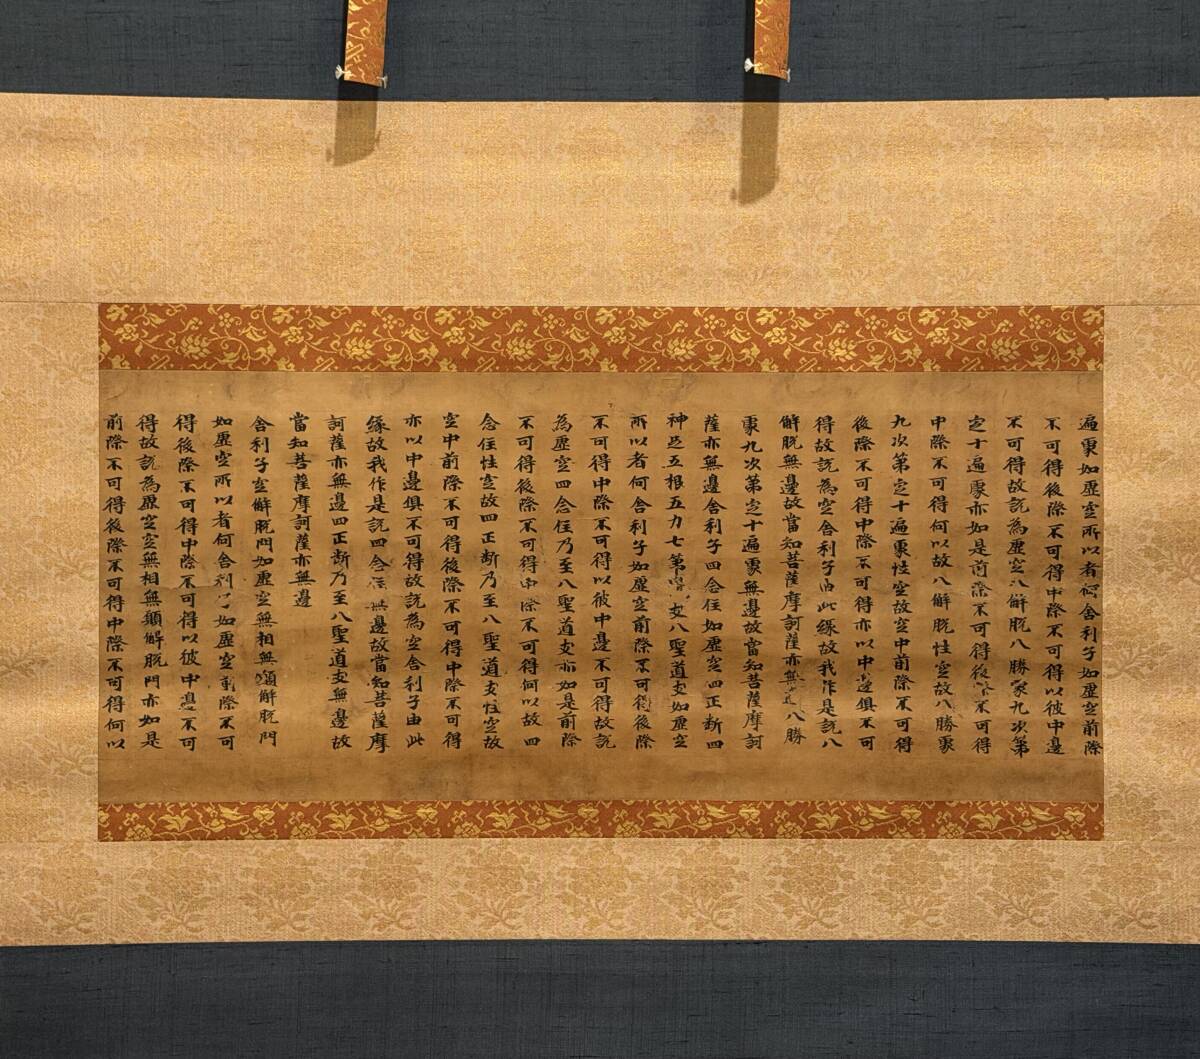 遍處如虛空所以者何舍利子如虛空前際
不可得後際不可得中際不可得以彼中邊
不可得故說為虛空八解脫八勝處九次第
定十遍處亦如是前際不可得後際不可得
中際不可得何以故八解脫性空故八勝處
九次第定十遍處性空故空中前際不可得
後際不可得中際不可得亦以中邊俱不可
得故說為空舍利子由此緣故我作是說八
解脫無邊故當知菩薩摩訶薩亦無邊八勝
處九次第定十遍處無邊故當知菩薩摩訶
薩亦無邊舍利子四念住如虛空四正断四
神足五根五力七等覺支八聖道支如虛空
所以者何舍利子如虛空前際不可得後際
不可得中際不可得以彼中邊不可得故說
為虛空四念住乃至八聖道支亦如是前際
不可得後際不可得中際不可得何以故四
念住性空故四正断乃至八聖道支性空故
空中前際不可得後際不可得中際不可得
亦以中邊俱不可得故說為空舍利子由此
緣故我作是說四念住無邊故當知菩薩摩
訶薩亦無邊四正断乃至八聖道支無邊故
當知菩薩摩訶薩亦無邊
舍利子空解脫門如虛空無相無願解脫門
如虛空所以者何舍利子如虛空前際不可
得後際不可得中際不可得以彼中邊不可
得故說為虛空空無相無願解脫門亦如是
前際不可得後際不可得中際不可得何以